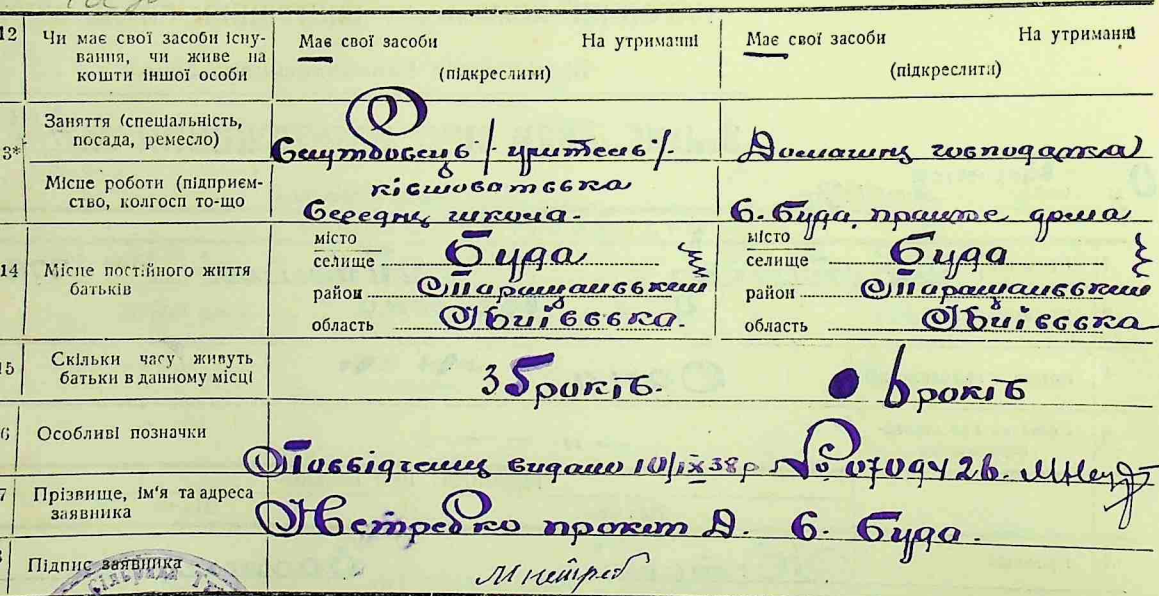 12 Чи має свої засоби існування, чи живе на кошти іншої особи
Має свої засоби На утриманні
(підкреслити)
Має свої засоби На утриманні
(підкреслити)
3* Заняття (спеціальність, посада, ремесло)
/учитель/
Домашня господарка
Місце роботи (підприємство, колгосп то-що
Середня школа.
С. Буда працює дома
14 Місце постійного життя батьків
місто
селище Буда
район Таращанський
область Київська.
місто
селище Буда
район Таращанський
область Київська
15 Скільки часу живуть батьки в данному місці
35 років.
6 років
6 Особливі позначки
Посвідчення видано 10/IX 38р № 070942
7 Прізвище, ім'я та адреса заявника
Нетребко Прокіп Д. С. Буда.
Підпис заявника